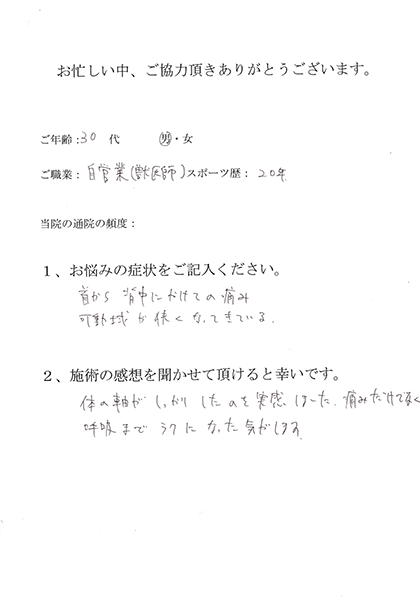 お忙しい中、ご協力頂きありがとうございます。
ご年齢：30 代 男・女
ご職業：自営業(獣医師) スポーツ歴：20年
当院の通院の頻度：
1、お悩みの症状をご記入ください。
首から 背中にかけての痛み
可動域が狭くなってきている。
2、施術の感想を聞かせて頂けると幸いです。
体の軸がしっかりしたのを実感しました。痛みだけでなく
呼吸までラクになった気がします。